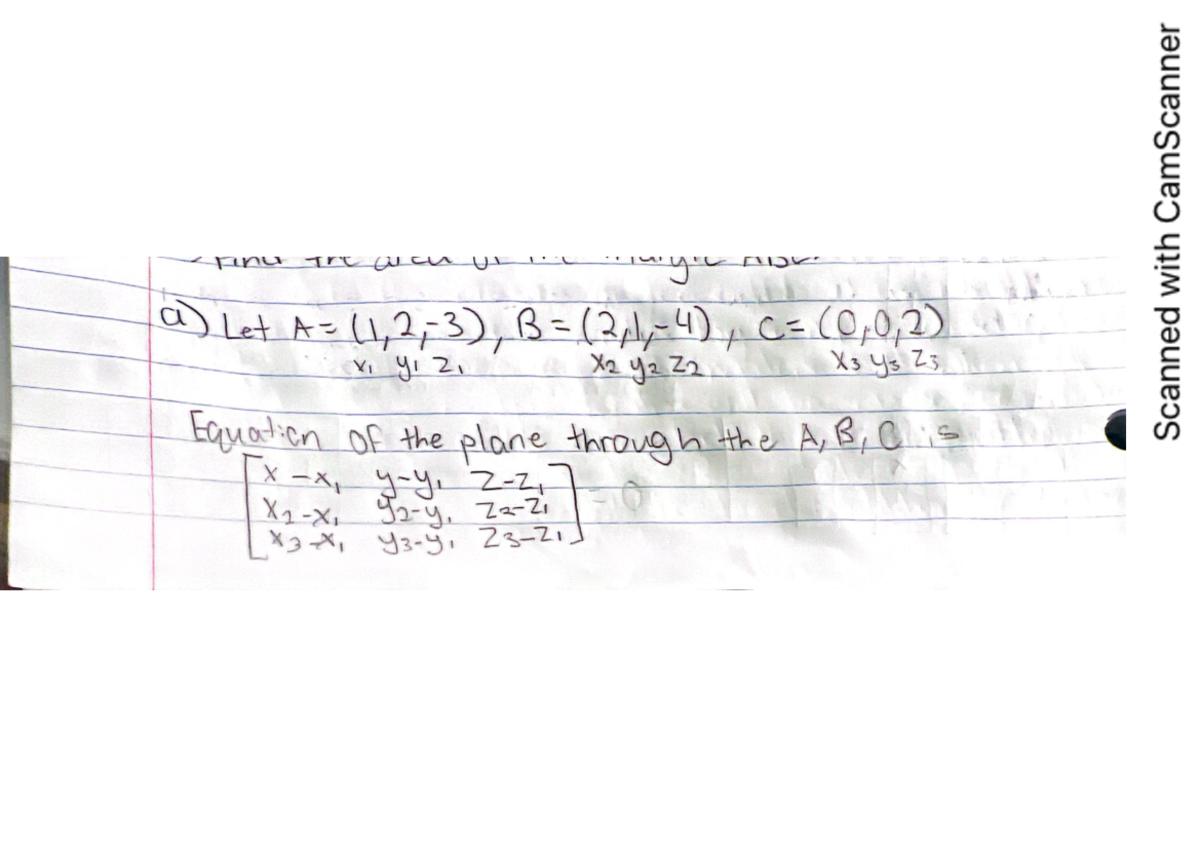 a) Let A = (1,2,-3), B = (2,1,-4), C = (0,0,2)
x₁ y₁ z₁ x₂ y₂ z₂ x₃ y₃ z₃
Equation of the plane through the A, B, C is
x - x₁ y-y₁ z-z₁ = 0
x₂-x₁ y₂-y₁ z₂-z₁
x₃-x₁ y₃-y₁ z₃-z₁
Scanned with CamScanner